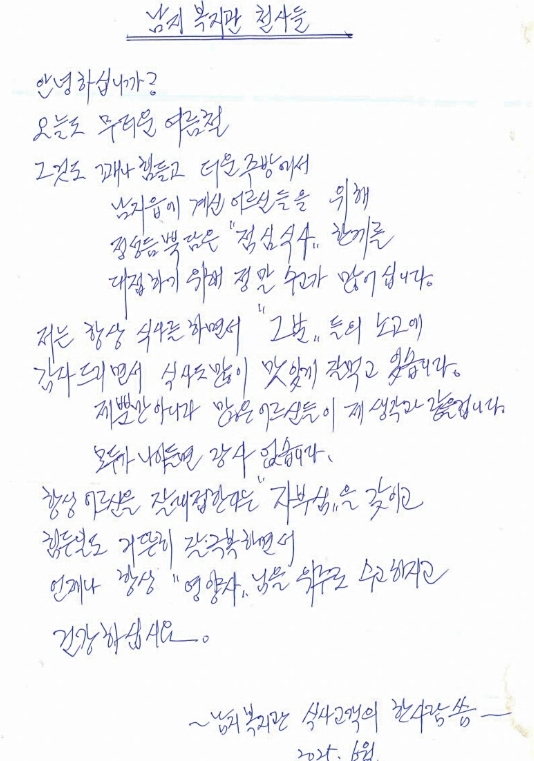 남지 복지관 천사들
안녕하십니까?
오늘도 무더운 여름철
그것도 꽤나 힘들고 더운 주방에서
남지읍에 계신 어르신들을 위해
정성듬뿍 담은 "점심식사" 한끼를
대접하기 위해 정말 수고가 많어십니다.
저는 항상 식사를 하면서 "그분"들의 노고에
감사드리면서 식사도 많이 맛있게 잘먹고 있습니다.
제뿐만아니라 많은 어르신들이 제 생각과 같을겁니다.
모두가 나이들면 장사 없습니다.
항상 어르신을 잘대접한다는 "자부심"을 갖이고
힘든일도 거뜬히 잘극복하면서
언제나 항상 "영양사"님을 위주로 수고하시고
건강하십시요.
~남지복지관 식사고객의 한사람 씀~
2025. 6월